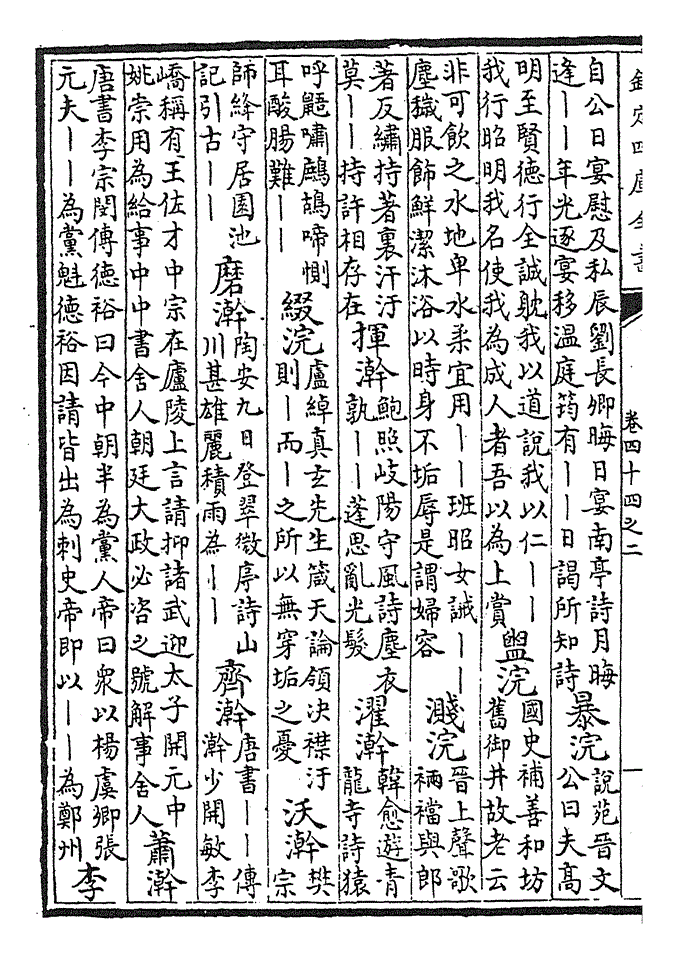 欽定四庫全書
卷四十四之二
一
自公日宴慰及私辰劉長卿晦日宴南亭詩月晦
逢丨丨年光逐宴移温庭筠有丨丨日謁所知詩
暴浣
説苑晉文
公曰夫髙
明至賢德行全誠耽我以道説我以仁丨丨
我行昭明我名使我為成人者吾以為上賞
盥浣
國史補善和坊
舊御井故老云
非可飲之水地卑水柔宜用丨丨班昭女誡丨丨
塵穢服飾鮮潔沐浴以時身不垢辱是謂婦容
濺浣
晉上聲歌
裲襠與郎
著反繡持著裏汗汙
莫丨丨持許相存在
揮澣
鮑照岐陽守風詩塵衣
孰丨丨蓬思亂光髮
濯澣
韓愈遊青
龍寺詩猿
呼鼯嘯鷓鴣啼惻
耳酸腸難丨丨
綴浣
盧綽真玄先生箴天論領決襟汙
則丨而丨之所以無穿垢之憂
沃澣
樊
宗
師絳守居園池
記引古丨丨
磨澣
陶安九日登翠微亭詩山
川甚雄麗積雨為丨丨
齊澣
唐書丨丨傳
澣少開敏李
嶠稱有王佐才中宗在廬陵上言請抑諸武迎太子開元中
姚崇用為給事中中書舍人朝廷大政必咨之號解事舍人
蕭澣
唐書李宗閔傳德裕曰今中朝半為黨人帝曰衆以楊虞卿張
元夫丨丨為黨魁德裕因請皆出為刺史帝即以丨丨為鄭州
李